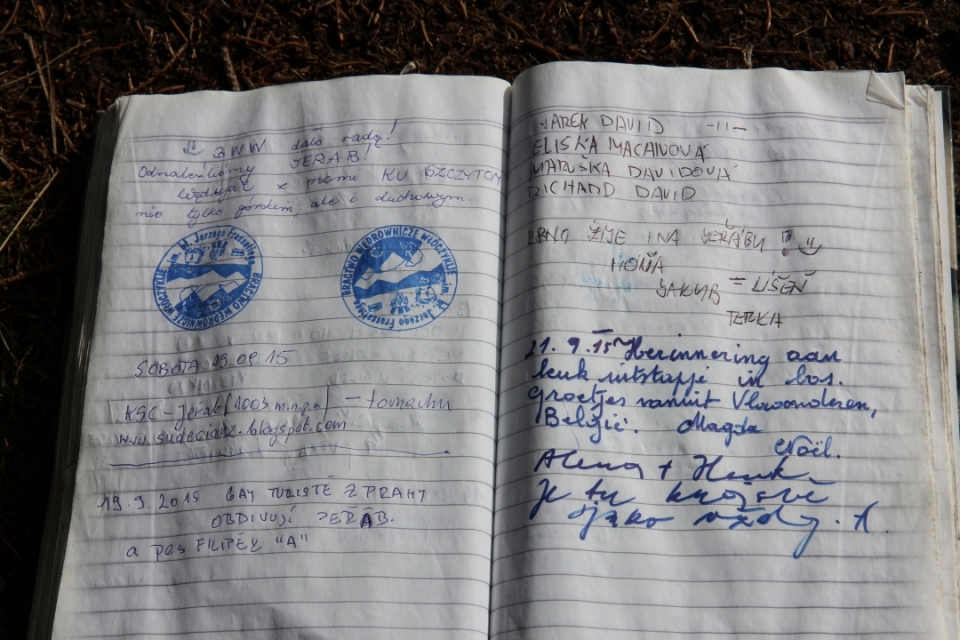 BWW dało rady!
Odnaleźliśmy JERAB!
z nami KU SZCZYTOM
nie tylko górskim, ale i duchowym.
BRACTWO WĘDROWNICZE WŁÓCZYKIJE im. bł. Jerzego Frassatiego
BRACTWO WĘDROWNICZE WŁÓCZYKIJE im. bł. Jerzego Frassatiego
SOBOTA 19.09.15
KGC - Jeřáb (1003 m.n.p.m) - tomachu
www.sudeciarz.blogspot.com
19.9.2015 GAY TURISTÉ Z PRAHY
OBDIVUJÍ JEŘÁB.
a pes FILIPEK "A"
MAREK DAVID -11-
ELIŠKA MACANOVÁ
MARUŠKA DAVIDOVÁ
RICHARD DAVID
BRNO ŽIJE I NA JEŘÁBU!
HONZA
JAKUB = LÍŠEŇ
TERKA
21.9.15 Herinnering aan
leuk uitstapje in bos.
Groetjes vanuit Vlaanderen,
België. Magda
Noël.
Alena + Henk
Je tu krásně
jako vždy. A.